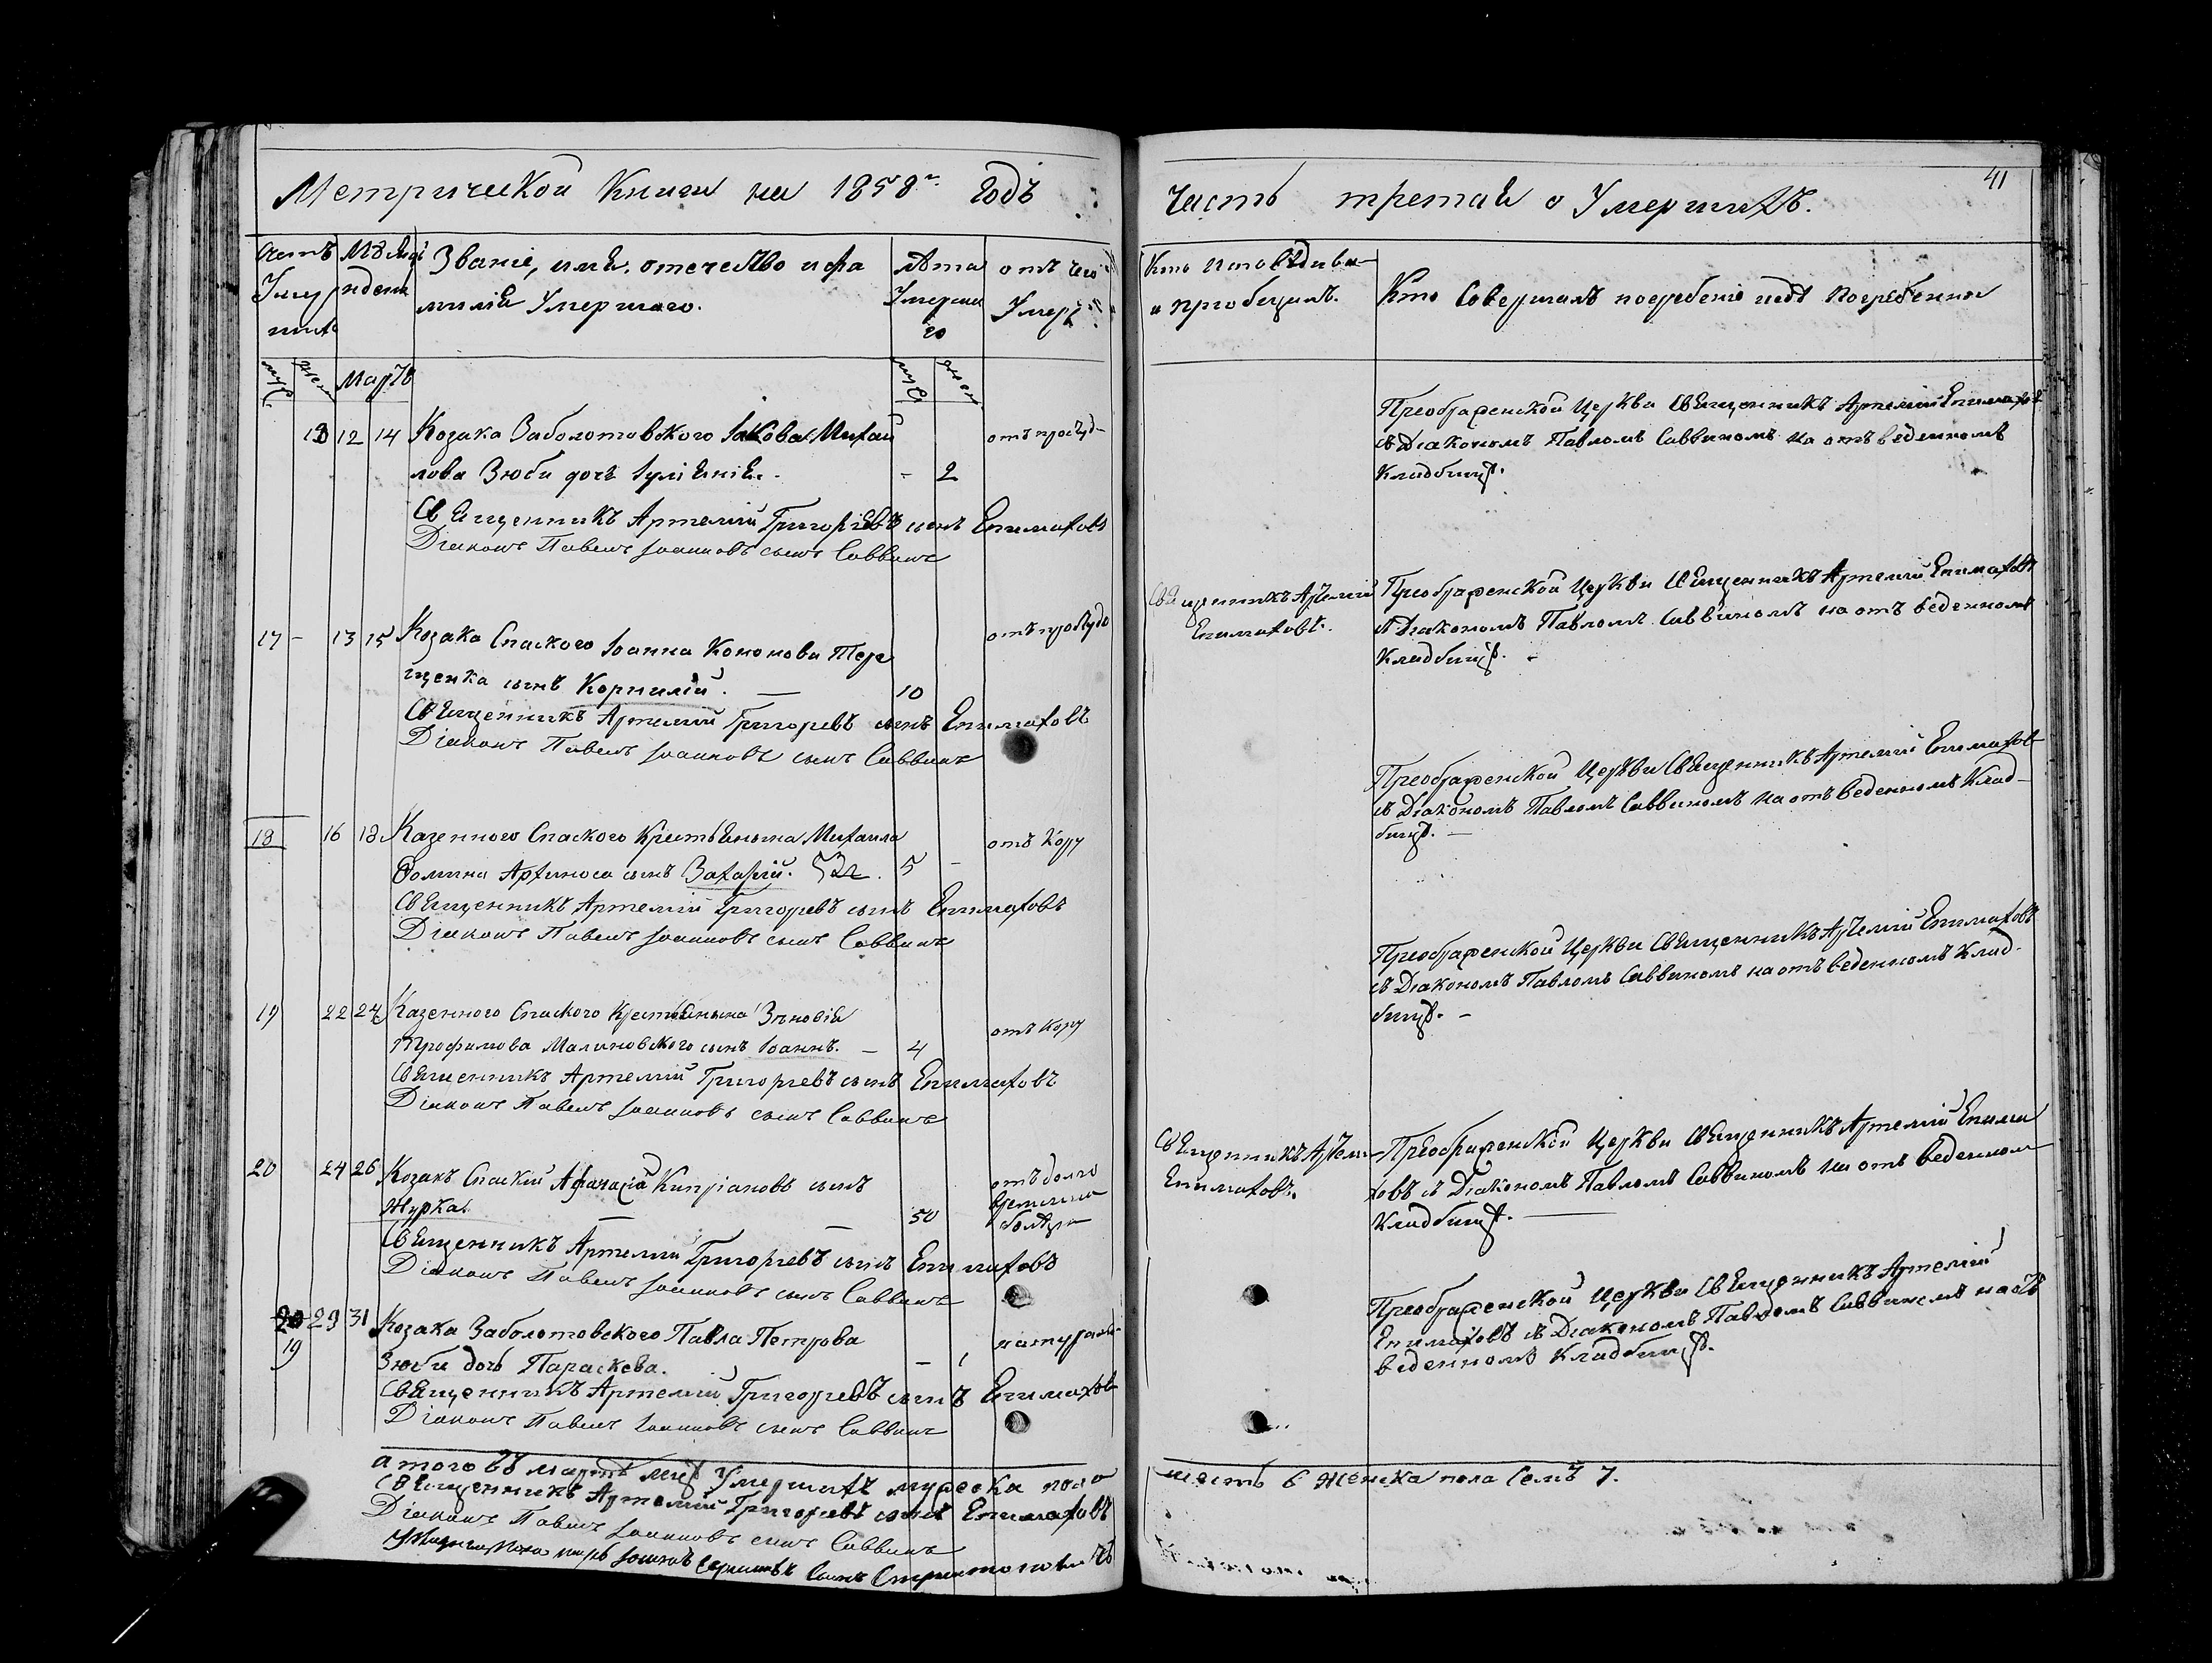 Метрической Книги на 1858й Годъ
Счетъ Умершихъ
Мѣсяцъ и день
Званіе, имя, отечество и фамилія Умершаго.
Лѣта Умершаго
отъ чего Умеръ
муж. женс. Мартъ муж. женс.
13 12 14 Козака Заболотовского Іакова Михай
лова Зюби дочъ Іуліянія. - 2 отъ простуд-
Священникъ Артемій Григоріевъ сынъ Епимаховъ
Діяконъ Павелъ Іоанновъ сынъ Саввинъ
17 - 13 15 Козака Спаского Іоанна Кононова Тере
щенка сынъ Корнилій. — 10 отъ простуд
Священникъ Артемій Григоревъ сынъ Епимаховъ
Діяконъ Павелъ Іоанновъ сынъ Саввинъ
18 16 18 Казенного Спаского Крестьянина Михаила
Фомина сынъ Захарій. 5 - отъ Кору
Священникъ Артемій Григоревъ сынъ Епимаховъ
Діяконъ Павелъ Іоанновъ сынъ Саввинъ
19 22 24 Казенного Спаского Крестьянина Зѣновія
Трофимова Малиновского сынъ Іоаннъ. — 4 отъ Кору
Священникъ Артемій Григорревъ сынъ Епимаховъ
Діяконъ Павелъ Іоанновъ сынъ Саввинъ
20 24 26 Козакъ Спаскій Афанасій Кипріановъ сынъ
Журка. — — 50 отъ долговременна болѣзн
Священникъ Артемій Григорревъ сынъ Епимаховъ
Діяконъ Павелъ Іоанновъ сынъ Саввинъ
19 29 31 Козака Заболотовского Павла Петрова
Зюби дочъ Параскева. — 1 натураль
Священникъ Артемій Григоревъ сынъ Епимаховъ
Діяконъ Павелъ Іоанновъ сынъ Саввинъ
а того въ мартѣ мцѣ Умершихъ мужеска пола
Священникъ Артемій Григоревъ сынъ Епимаховъ
Діяконъ Павелъ Іоанновъ сынъ Саввинъ
41
Часть третая о Умершихъ.
Кто исповѣдива-
и пріобщилъ.
Кто Совершалъ погребеніе и гдѣ погребенны
Преображенской Церкви Священникъ Артемій Епимаховъ
съ Діакономъ Павломъ Саввиномъ на отъведенномъ
Кладбищѣ.
Священникъ Артемій
Епимаховъ.
Преображенской Церкви Священникъ Артемій Епимаховъ
съ Діакономъ Павломъ Саввиномъ на отъ веденномъ
Кладбищѣ. -
Преображенской Церкви Священникъ Артемій Епимахов
съ Діакономъ Павломъ Саввиномъ на отъ веденномъ Клад-
бищѣ. —
Преображенской Церкви Священникъ Артемій Епимаховъ
съ Діакономъ Павломъ Саввиномъ на отъ веденномъ Клад-
бищѣ. -
Священникъ Артеми
Епимаховъ.
Преображенской Церкви Священникъ Артемій Епима
ховъ съ Діакономъ Павломъ Саввиномъ на отъ веденном
Кладбищѣ. —
Преображенской Церкви Священникъ Артемій
Епимаховъ съ Діакономъ Павломъ Саввиномъ на отъ
веденномъ Кладбищѣ.
шесть 6 Женска пола Семъ 7.